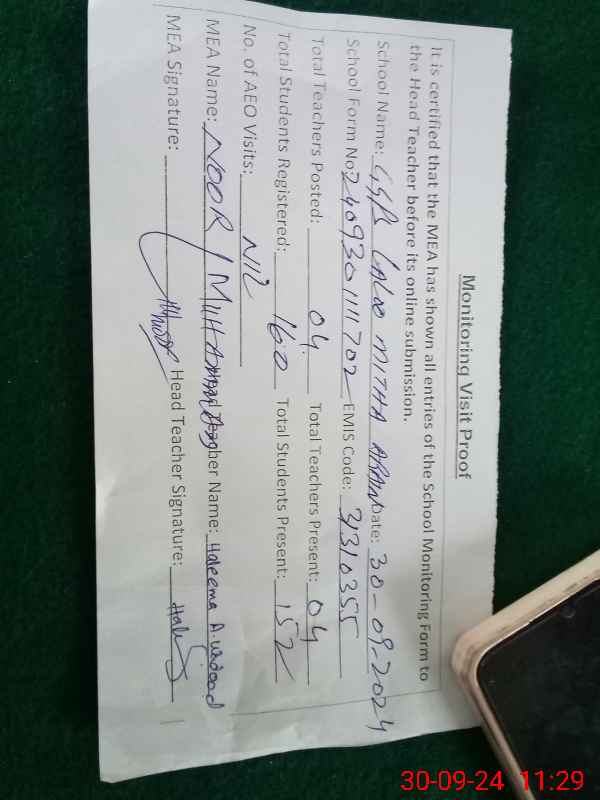 Monitoring Visit Proof
It is certified that the MEA has shown all entries of the School Monitoring Form to
the Head Teacher before its online submission.
School Name: GGPS LALOO MITHA ARAIN Date: 30-09-2024
School Form No: 2409301111702 EMIS Code: 31310355
Total Teachers Posted: 04 Total Teachers Present: 04
Total Students Registered: 160 Total Students Present: 152
No. of AEO Visits: NIL
MEA Name: NOOR MUHAMMAD Head Teacher Name: Haleema A. wadood
MEA Signature: Head Teacher Signature:
30-09-24 11:29